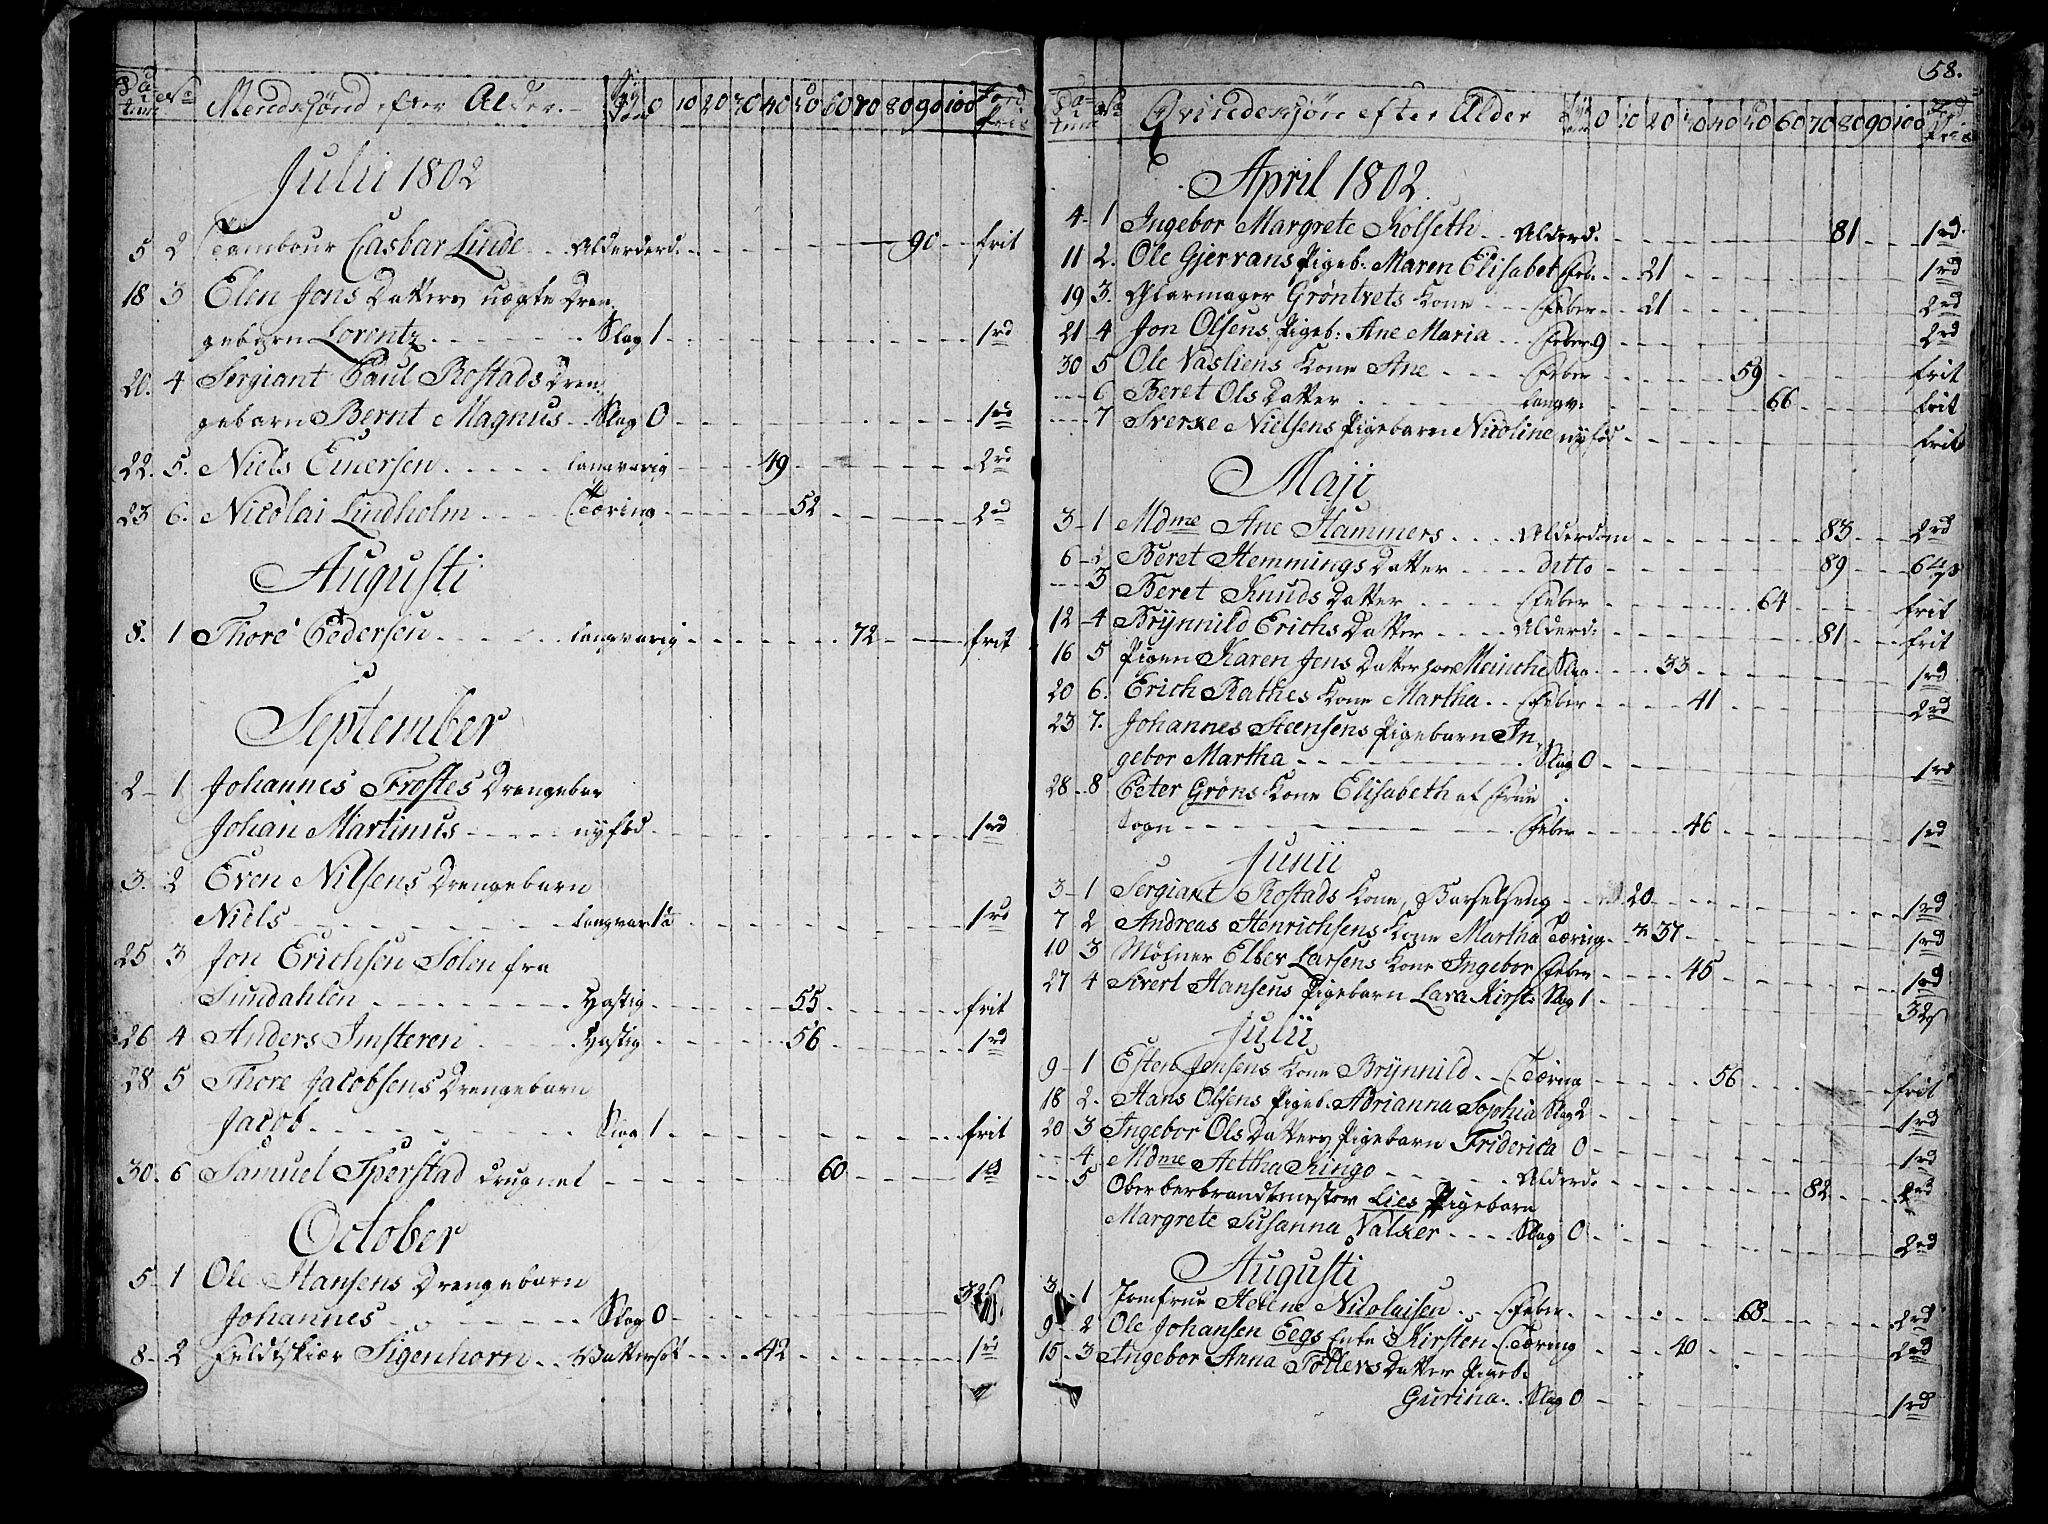 Da-
tum No Mendskjønd efter Alder. Syg
dom 0 10 20 30 40 50 60 70 80 90 100 Jord
Pris
Julii 1802
5 2 Tambour Casbar Linde Alderderd. 90 frit
18 3 Elen Jons Datters uægte Dren,
gebarn Lorentz Slag 1 1rd
20. 4 Sergiant Paul Rostads Dren,
gebarn Bernt Magnus Slag 0 1rd
22. 5. Niels Einersen langvarig 49 2rd
23 6. Nicolai Lindholm Tæring 52 2rd
Augusti
8. 1 Thore Pedersen langvarig 72 frit
September
2 1 Johannes Frostes Drengebar
Johan Martinus nyfød 1rd
3. 2 Even Nilsens Drengebarn
Niels langvar 1rd
25 3 Jon Erichsen Solen fra
Sundahlen Hastig 55 frit
26 4 Anders Imsteren Hastig 56 1rd
28 5 Thore Jacobsens Drengebarn
Jacob Slag 1 frit
30. 6 Samuel Sperstad 60 1rd
October
5 1 Ole Hansens Drengebarn
Johannes Slag 0 32s
8 2 Feldtskiær Sigenhorn Vattersot 42 1rd
58.
Da-
tum No Qvindeskjøn efter Alder 0 10 20 30 40 50 60 70 80 90 100
April 1802
4 1 Ingebor Margrete Kolseth Alderd. 81 1rd.
11 2. Ole Gjervans Pigeb. Maren Elisabet Feb. 21 1rd
19 3. Glarmager Grøntvets Kone Feber 21 2rd
21 4 Jon Olsens Pigeb: Ane Maria Feber 9 2rd
30 5 Ole Vasliens Kone Ane Feber 59 frit
6 Beret Ols Datter langv. 66 frit
7 Sverke Nielsens Pigebarn Nicoline nyfød frit
Maji
3 1 Mdme Ane Hammers Alderdom 83 2rd
6 2 Beret Hemmings Datter ditto 89 64s
3 Beret Knuds Datter Feber 64 frit
12 4 Brynnild Erichs Datter Alderd: 81 frit
16 5 Pigen Karen Jens Datter hos Meinche Slag 33 1rd
20 6. Erich Rathes Kone Martha Feber 41 2rd
23 7. Johannes Steensens Pigebarn In,
gebor Martha Slag 0 1rd
28 8 Peter Grøns Kone Elisabeth af Frue
Sogn Feber 46 1rd
Junii
3 1 Sergiant Rostads Kone, Barselseng 20 1rd
7 2 Andreas Henrichsens Kone Martha Tæring 37 1rd
10 3 Møhner Elber Larsens Kone Ingebor Feber 45 1rd
27 4 Sivert Hansens Pigebarn Lava Kirst: Slag 1 32s
Julii
9 1 Esten Jensens Kone Brynnild Tæring 56 frit
18 2. Hans Olsens Pigeb. Adrianna Sophia Slag 2 1rd
20 3 Ingebor Ols Datters Pigebarn Friderica 0 1rd
4 Mdme Aetha Kingo Alderd: 82 2rd
5 Oberberbrandtmester Lies Pigebarn
Margrete Susanna Valker Slag 0 2rd
Augusti
3 1 Jomfrue Helene Nicolaisen Feber 68 2rd
9 2 Ole Johansen Eegs Enke Kirsten Tæring 40 2rd
15 3 Ingebor Anna Tollers Datter Pigeb:
Gurina Slag 0 1rd